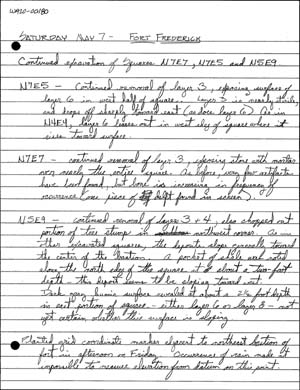 WA10-00180
SATURDAY MAY 7 - FORT FREDERICK
Continued excavation of Squares N7E7, N7E5 and N5E9
N7E5 - Continued removal of layer 3, exposing surface of
layer 6 in west half of square. Layer 3 is nearly sterile,
and drops off sharply toward east (as does layer 6). As in
N4E4, layer 6 lenses out in west edge of square where it
rises toward surface.
N7E7 - continued removal of layer 3, exposing stone with mortar
over nearly the entire square. As before, very few artifacts
have been found, but bone is increasing in frequency of
occurrence (one piece of found in screen).
N5E9 - continued removal of layers 3 + 4, also chopped out
portion of tree stump in northwest corner. As in
other excavated squares, the deposits slope generally toward
the center of the bastion. A pocket of shells was noted
along the north edge of the square at about a two-foot
depth - this deposit seems to be sloping toward east.
Thick organic humic surface revealed at about a 2½ foot depth
in east portion of square - either layer 6 or layer 8 - not
yet certain whether this surface is sloping.
Planted grid coordinate marker adjacent to northeast bastion of
fort in afternoon on Friday. Occurrence of rain made it
impossible to measure elevation from datum on this point.